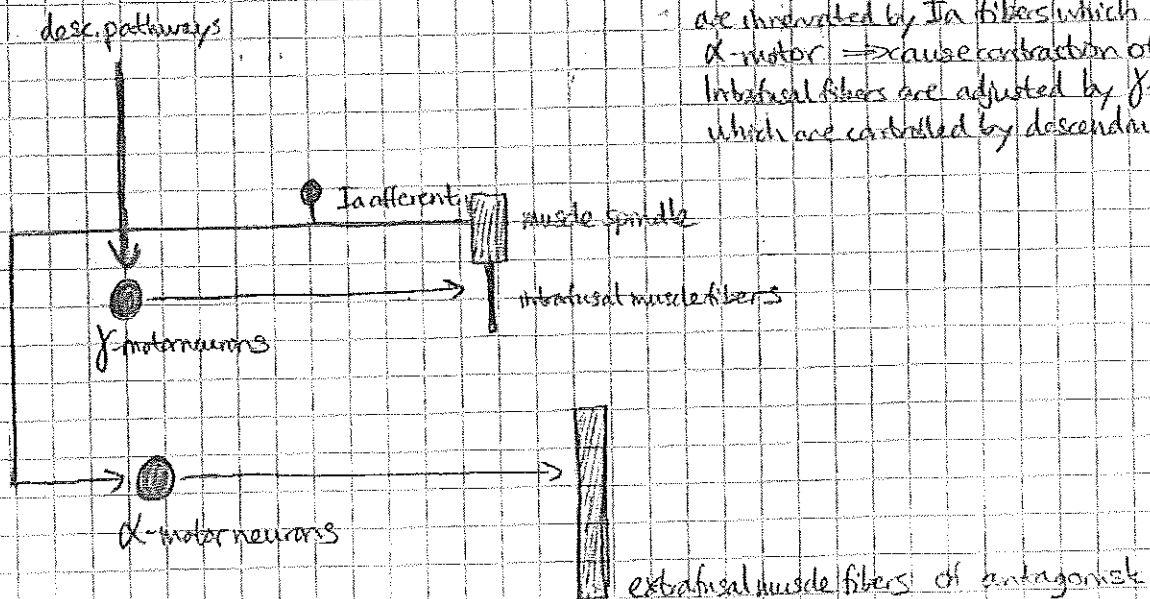 desc. pathways
are innervated by Ia fibers which
α-motor ⇒ cause contraction of
Intrafusal fibers are adjusted by γ-
which are controlled by descendin
Ia afferent
muscle spindle
intrafusal muscle fibers
γ-motorneurons
α-motorneurons
extrafusal muscle fibers of antagonist